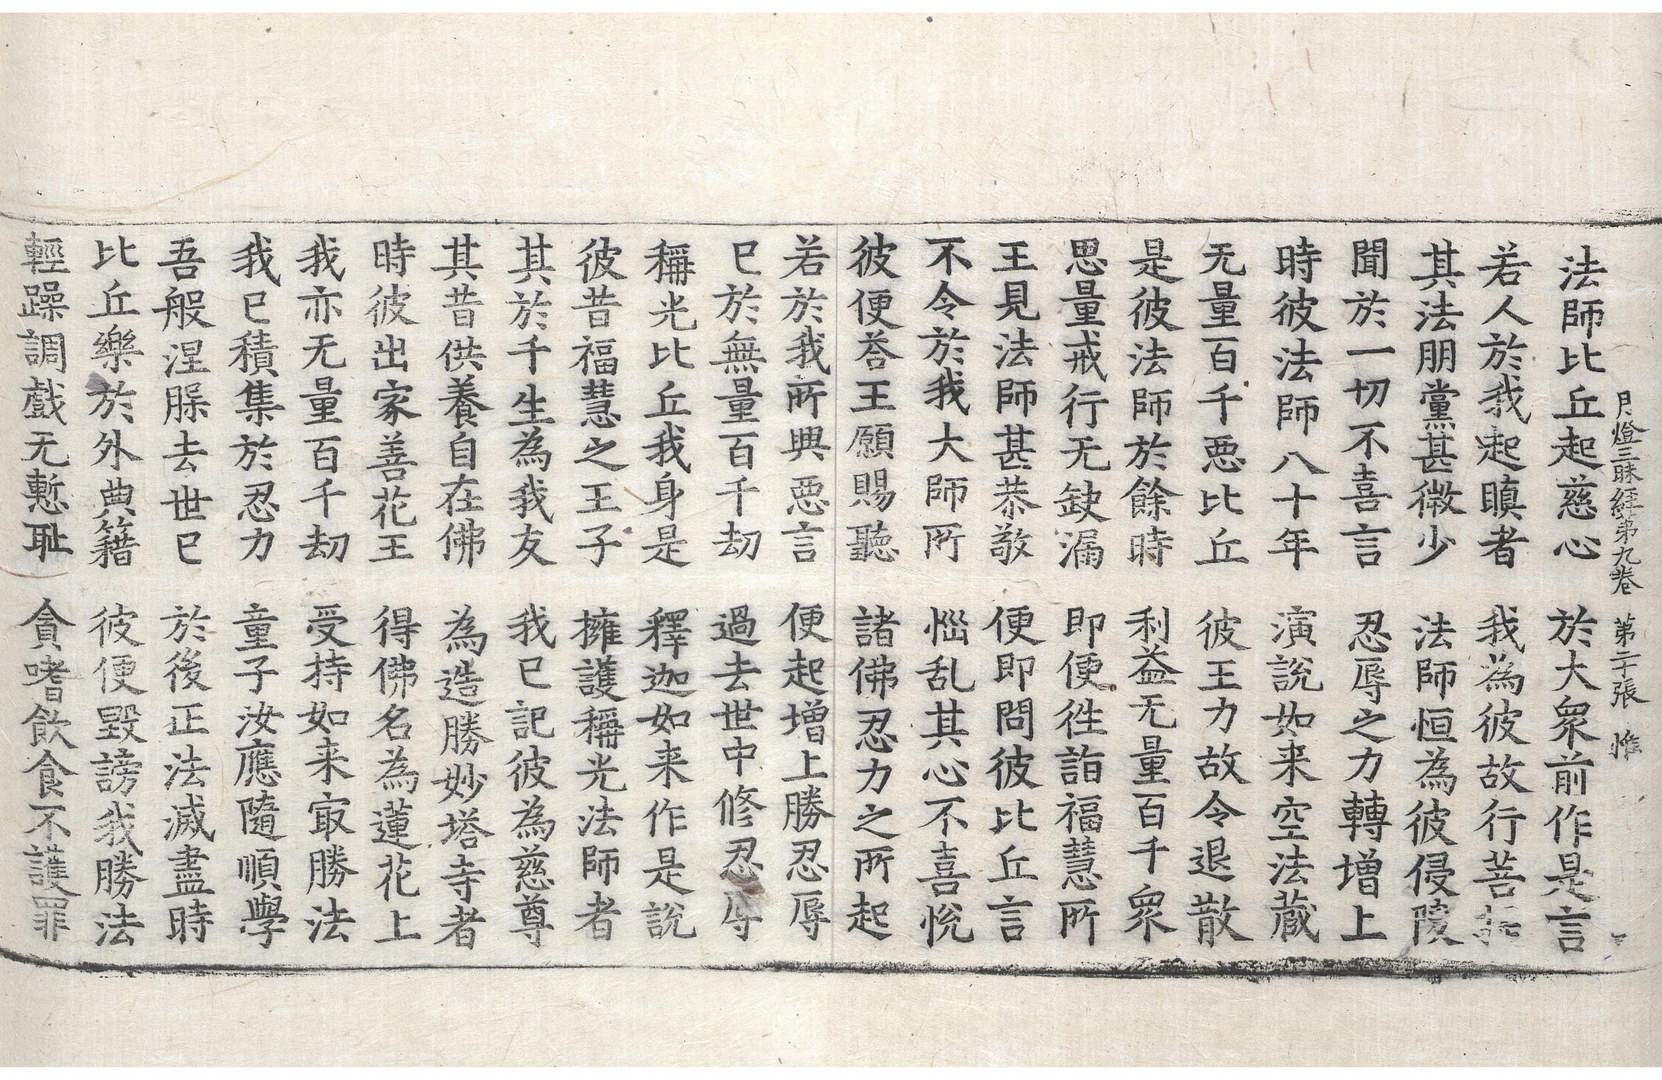 月燈三昧經第九卷　第二十張　惟
法師比丘起慈心　於大眾前作是言
若人於我起瞋者　我為彼故行菩提
其法朋黨甚微少　法師恒為彼侵陵
聞於一切不喜言　忍辱之力轉增上
時彼法師八十年　演說如来空法藏
无量百千悪比丘　彼王力故令退散
是彼法師於餘時　利益无量百千眾
思量戒行无缺漏　即便徃詣福慧所
王見法師甚恭敬　便即問彼比丘言
不令於我大師所　惱乱其心不喜悅
彼便荅王願賜聽　諸佛忍力之所起
若於我所興悪言　便起增上勝忍辱
已於無量百千劫　過去世中修忍辱
稱光比丘我身是　釋迦如来作是說
彼昔福慧之王子　擁護稱光法師者
其於千生為我友　我已記彼為慈尊
其昔供養自在佛　為造勝妙塔寺者
時彼出家善花王　得佛名為蓮花上
我亦无量百千劫　受持如来㝡勝法
我已積集於忍力　童子汝應隨順學
吾般涅槃去世已　於後正法滅盡時
比丘樂於外典籍　彼便毀謗我勝法
輕躁調戲无慙耻　貪嗜飲食不護罪